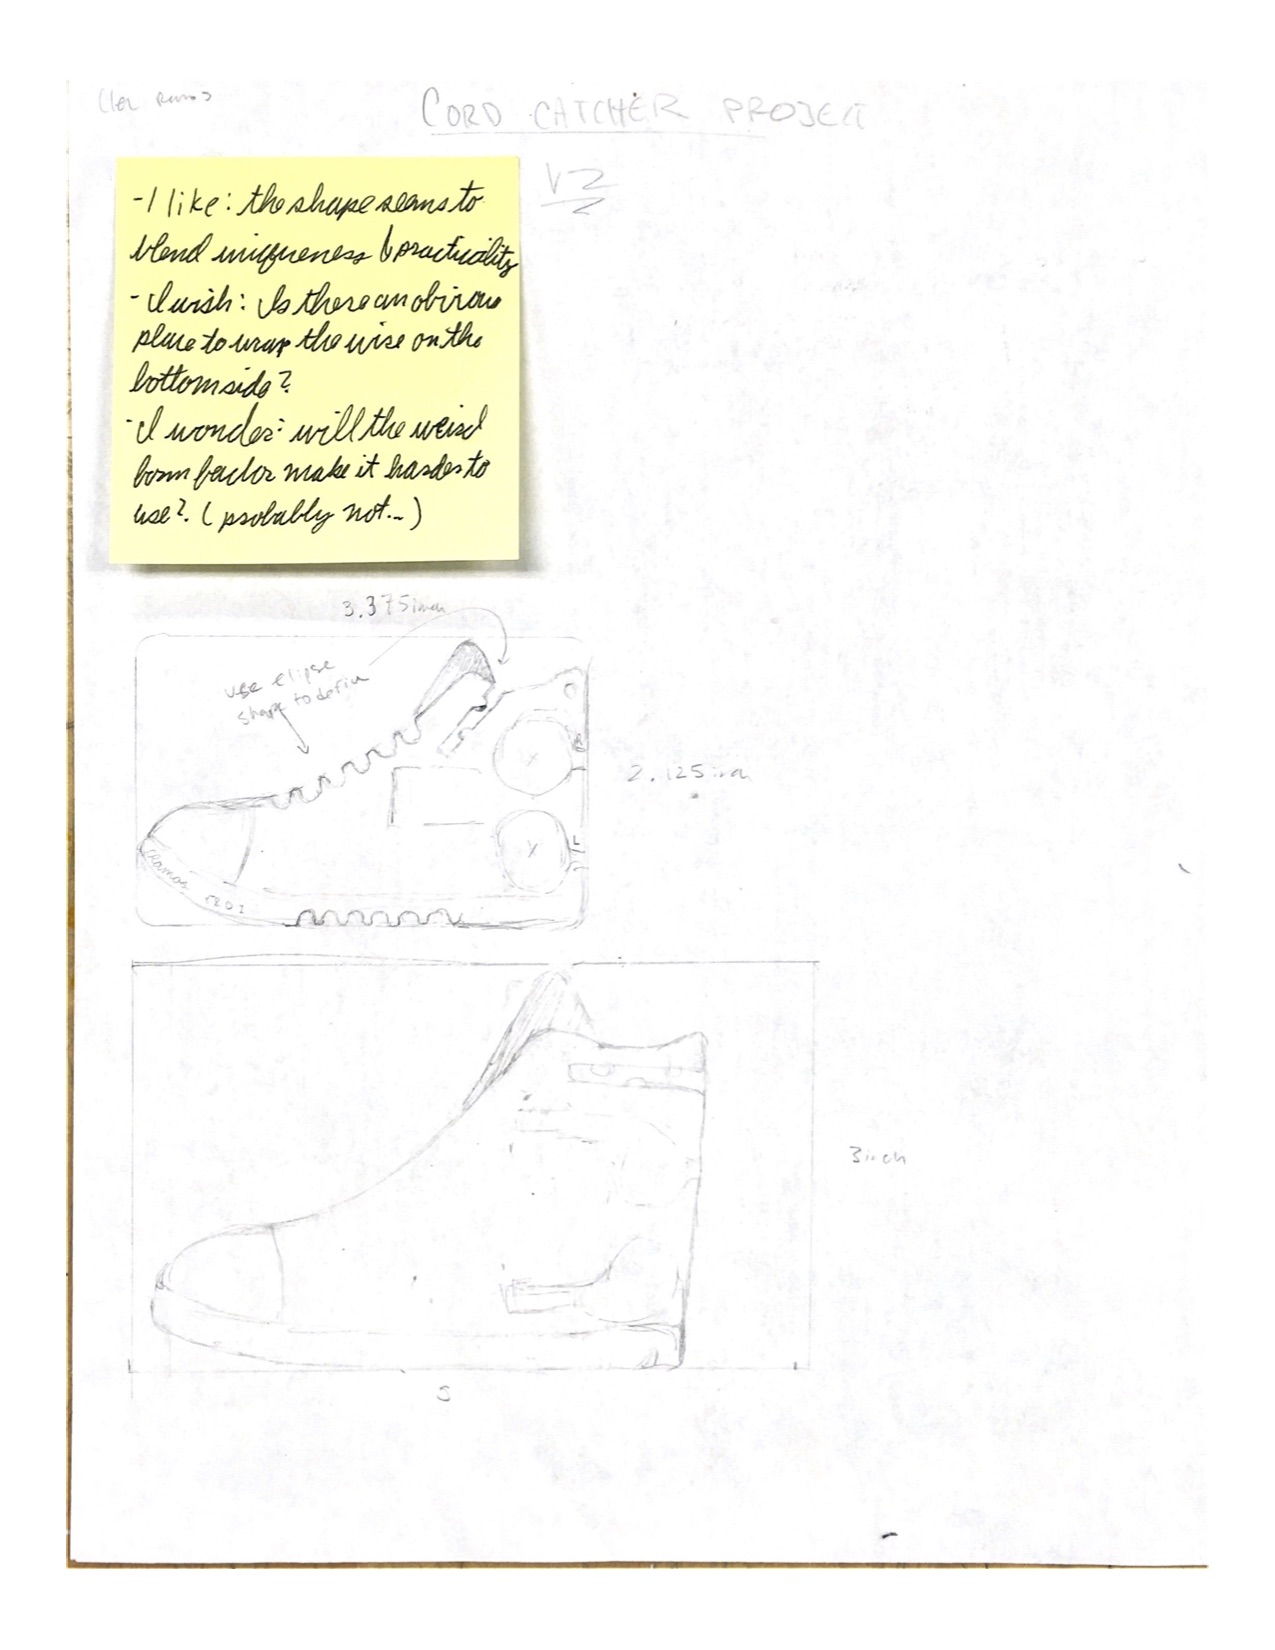 CORD CATCHER PROJECT
V2
- I like: the shape seems to
blend uniqueness & practicality
- I wish: Is there an obvious
place to wrap the wire on the
bottom side?
- I wonder: will the weird
form factor make it harder to
use? (probably not...)
3.375 inch
use elipse
shape to define
2.125 inch
Ramos
R
L
3 inch
5